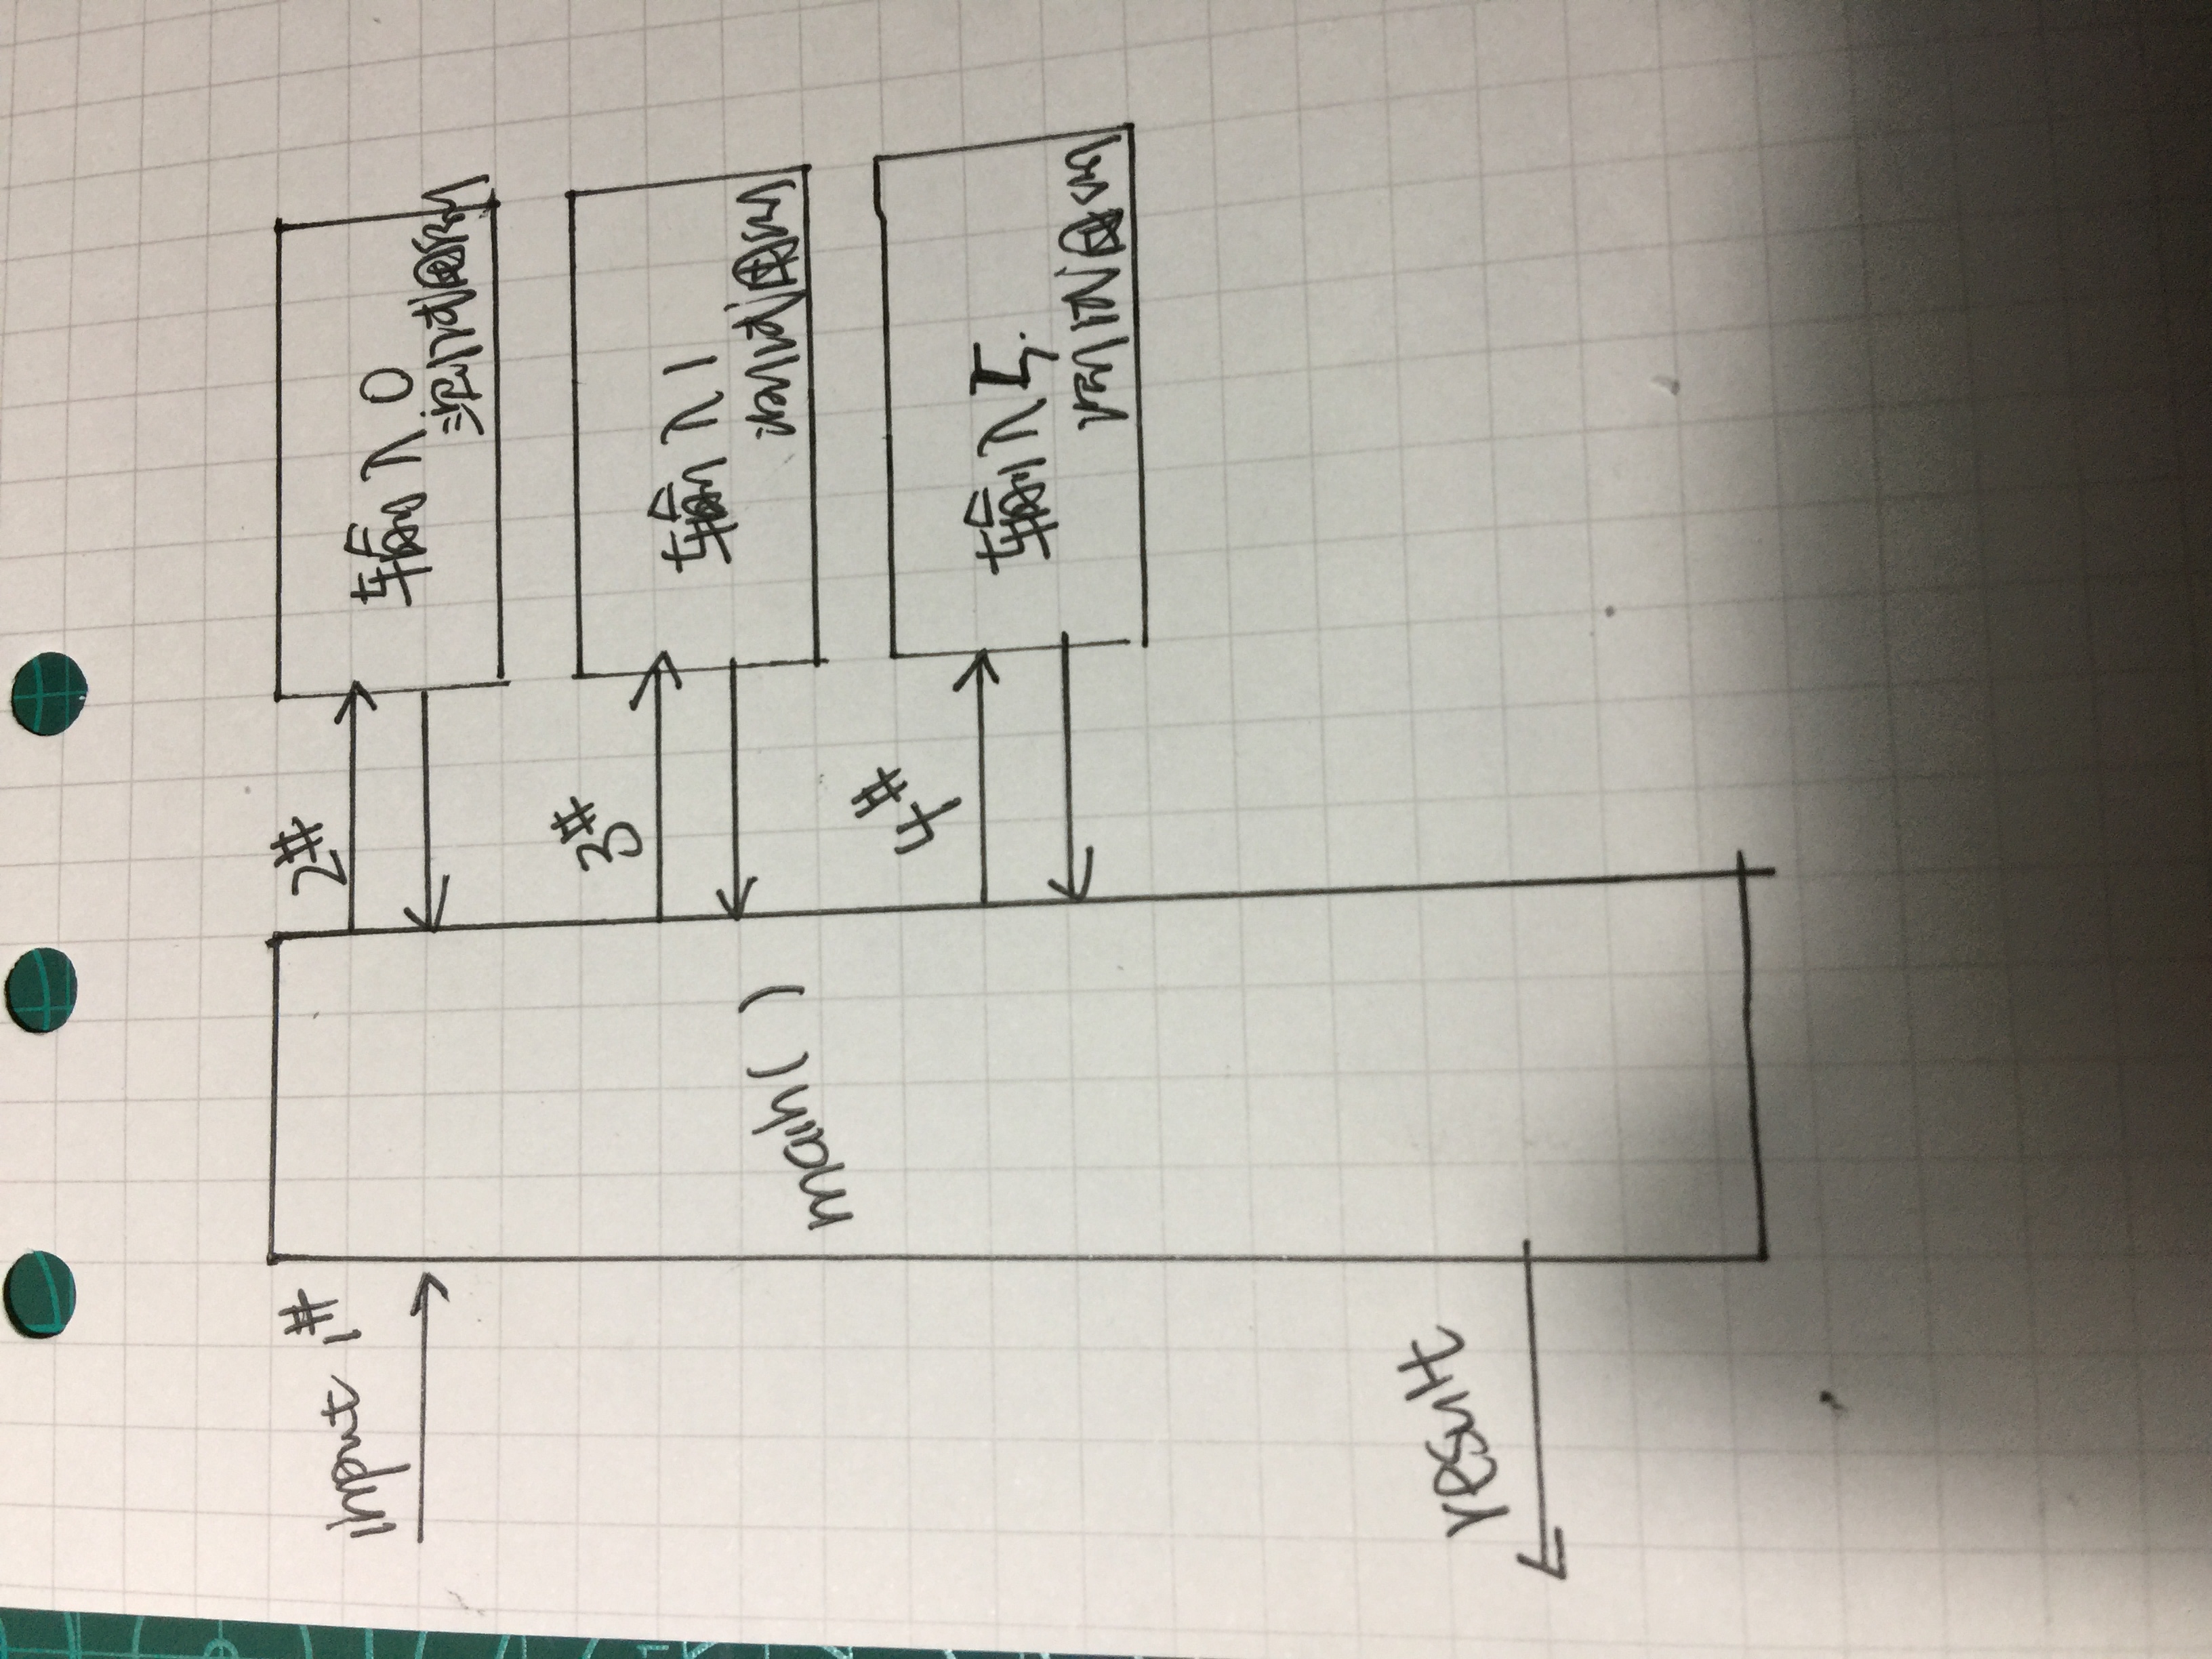 input 1#
2#
输入0
测试用例
3#
输入1
测试用例
main( )
4#
输入5
测试用例
result